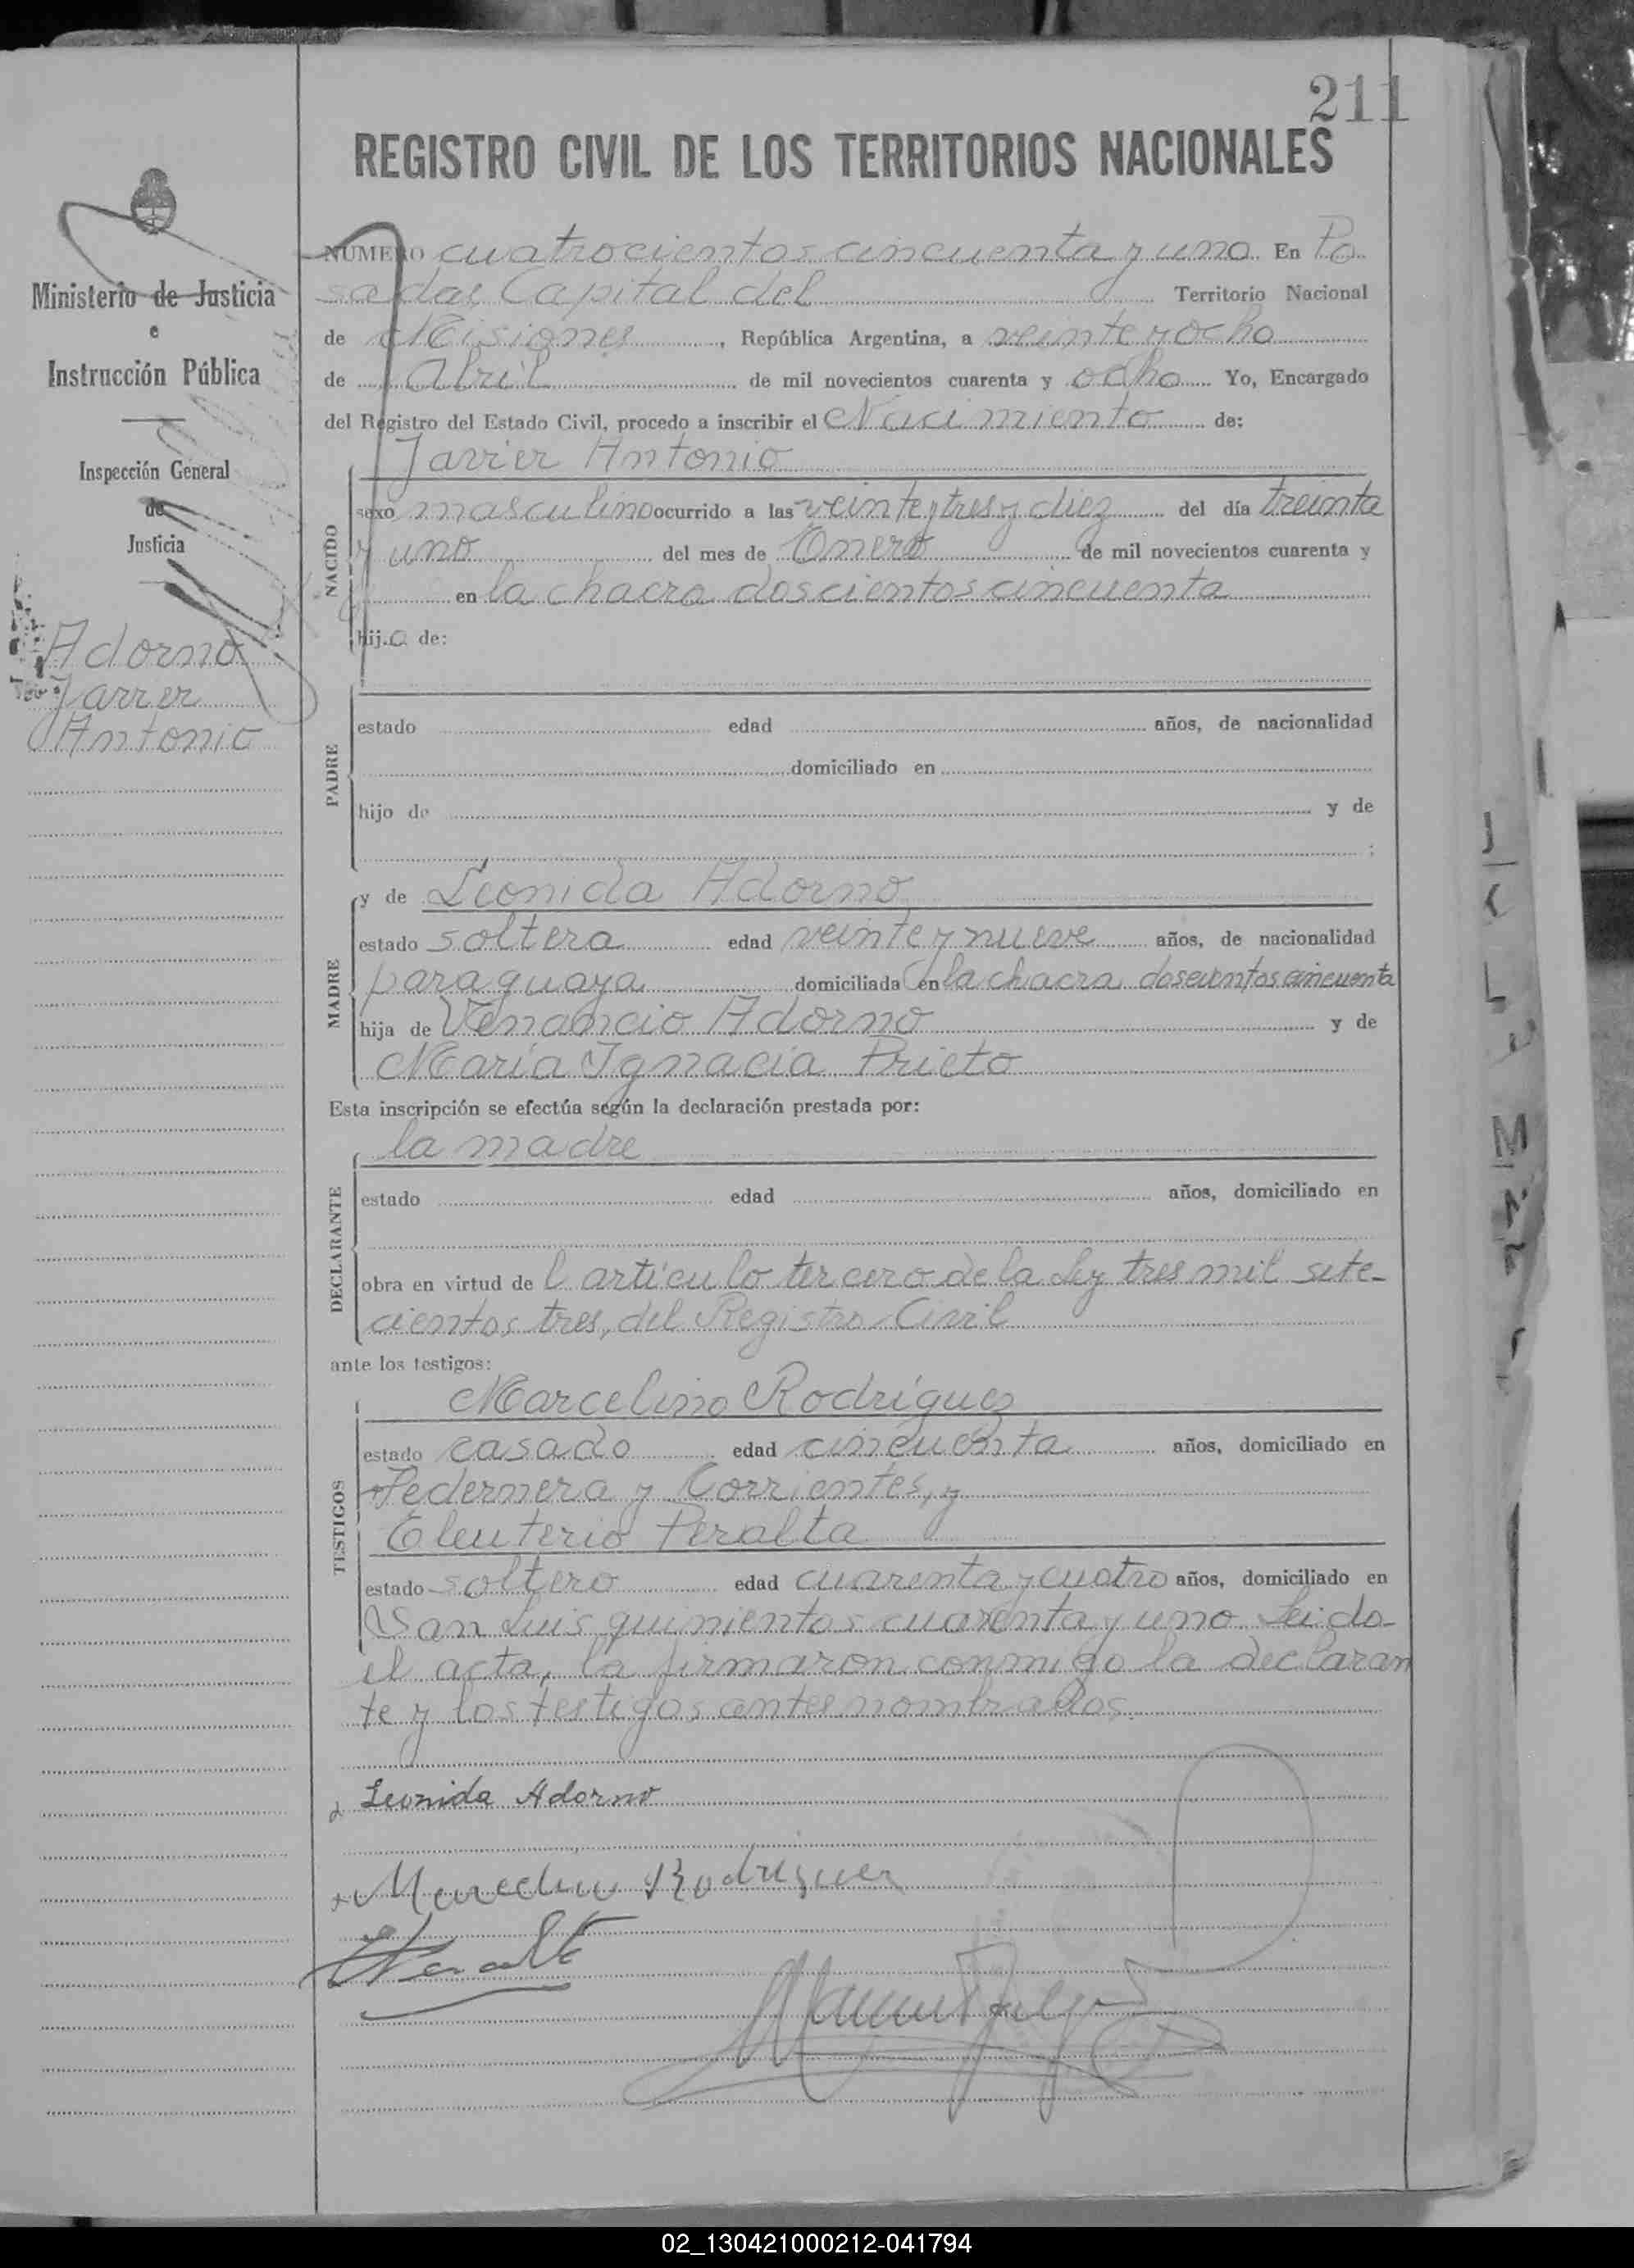 211
REGISTRO CIVIL DE LOS TERRITORIOS NACIONALES
Ministerio de Justicia
e
Instrucción Pública
Inspección General
de
Justicia
Adorno
Javier
Antonio
NUMERO cuatrocientos cincuenta y uno En Po
sadas Capital del Territorio Nacional
de Misiones, República Argentina, a veinte y ocho
de Abril de mil novecientos cuarenta y ocho Yo, Encargado
del Registro del Estado Civil, procedo a inscribir el Nacimiento de:
Javier Antonio
NACIDO
sexo masculino ocurrido a las veinte y tres y diez del día treinta
y uno del mes de Enero de mil novecientos cuarenta y
en la chacra doscientos cincuenta
hijo de:
PADRE
estado edad años, de nacionalidad
domiciliado en
hijo de y de
;
MADRE
y de Leonida Adorno
estado soltera edad veinte y nueve años, de nacionalidad
paraguaya domiciliada en la chacra doscientos cincuenta
hija de Venancio Adorno y de
María Ignacia Prieto
Esta inscripción se efectúa según la declaración prestada por:
la madre
DECLARANTE
estado edad años, domiciliado en
obra en virtud del artículo tercero de la Ley tres mil sete-
cientos tres, del Registro Civil
ante los testigos:
Marcelino Rodríguez
TESTIGOS
estado casado edad cincuenta años, domiciliado en
Pedernera y Corrientes, y
Eleuterio Peralta
estado soltero edad cuarenta y cuatro años, domiciliado en
San Luis quinientos cuarenta y uno. Leido
el acta, la firmaron conmigo la declaran
te y los testigos antes nombrados.
Leonida Adorno
Marcelino Rodriguez
02_130421000212-041794